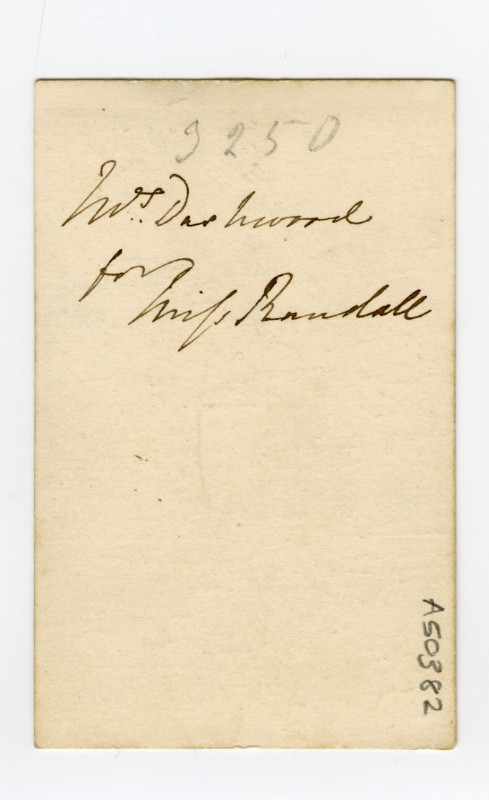 3250
Mrs. Dashwood
for
Miſs Randall
A50382